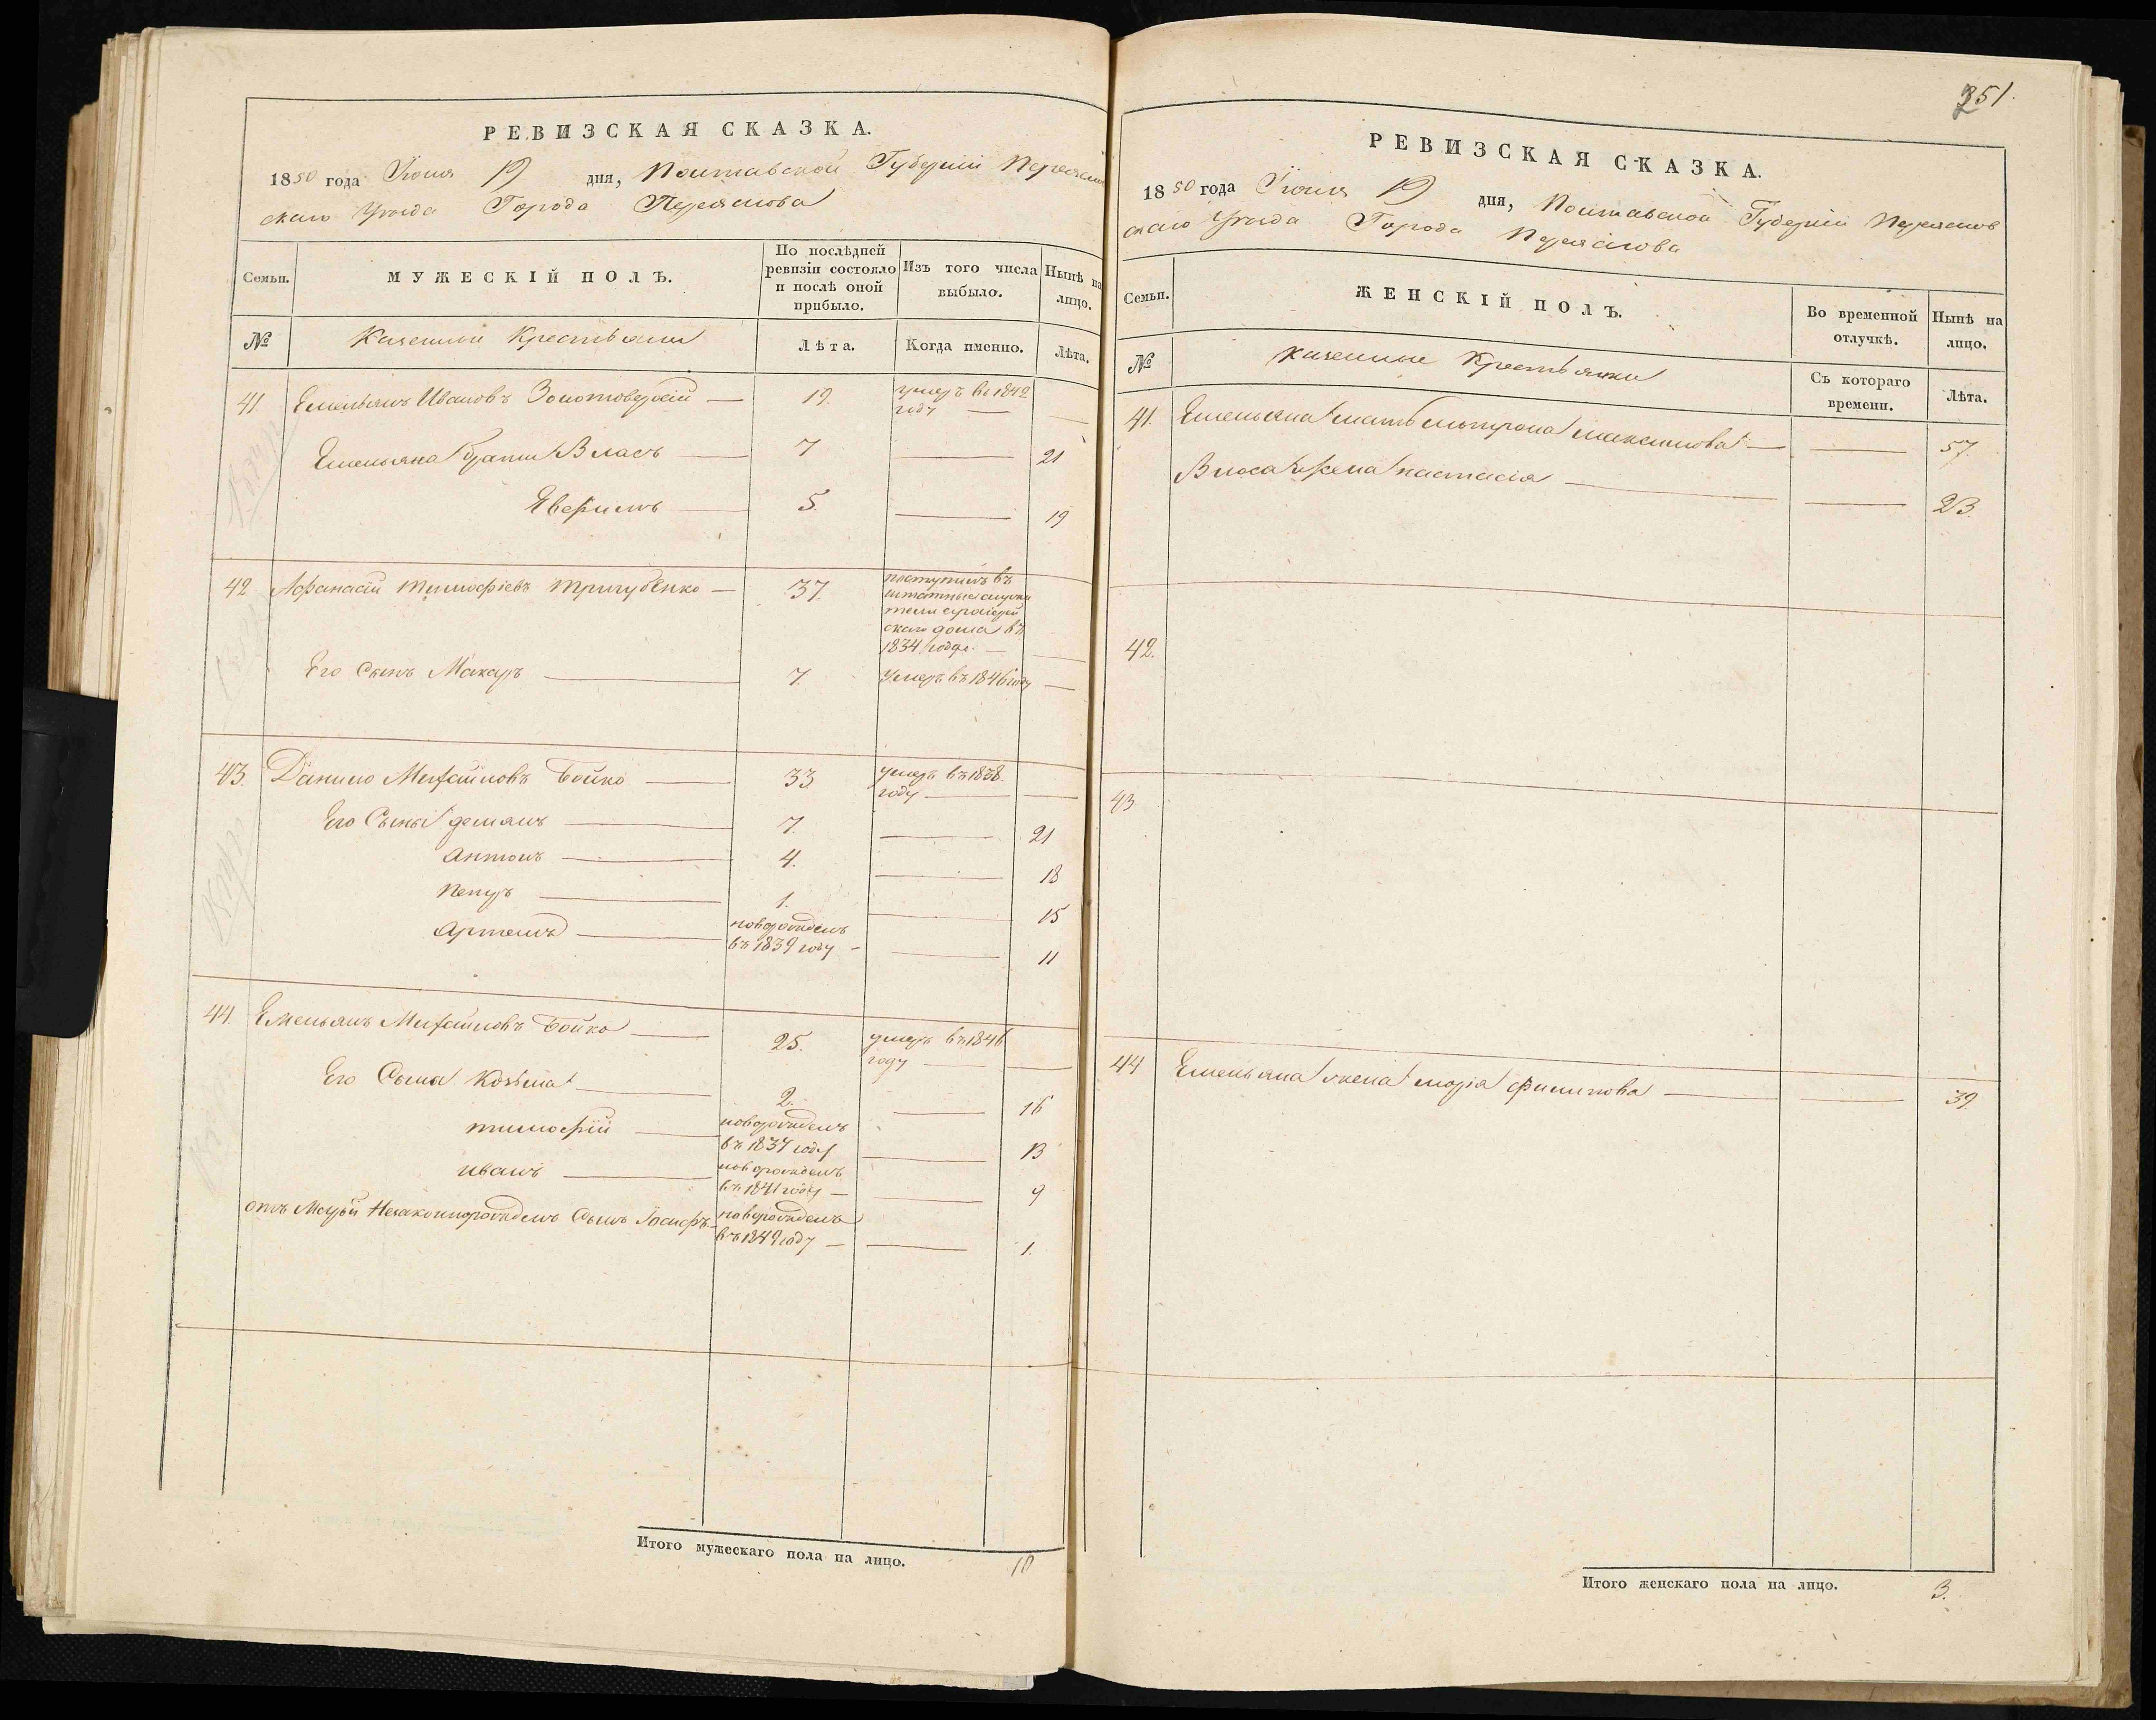 РЕВИЗСКАЯ СКАЗКА.
1850 года Іюня 19 дня, Полтавской Губерніи Переяслов
скаго Уѣзда Города Переяслова
Семьи.
МУЖЕСКІЙ ПОЛЪ.
По послѣдней
ревизіи состояло
и послѣ оной
прибыло.
Изъ того числа
выбыло.
Нынѣ на
лицо.
№
Казенныи Крестьяни
Лѣта.
Когда именно.
Лѣта.
41. Емельянъ Ивановъ 19. умеръ въ 1842
году
Емельяна браты Власъ 7 21
5. 19
42 Афанасій Тимофіевъ Тригубенко 37. поступилъ въ
штатные служи
тели
скаго дома въ
1834 годе.
Его Сынъ Макаръ 7. Умеръ въ 1846 году
43. Данило Михайловъ Бойко 33. умеръ въ 1838
году
Его Сыны демянъ 7. 21
Антонъ 4. 18
Петръ 1. 15
Артемъ новорожденъ
въ 1839 году 11
44. Емельянъ Михайловъ Бойко 25. умеръ въ 1846
году
Его Сына Козьма 2. 16
тимофій новорожденъ
въ 1837 году 13
иванъ новорожденъ
въ 1841 году 9
отъ Марьи Незаконнорожденъ Сынъ Іосифъ новорожденъ
въ 1849 году 1.
Итого мужескаго пола на лицо. 10
351.
РЕВИЗСКАЯ СКАЗКА.
1850 года Іюня 19 дня, Полтавской Губерніи Переяслов
скаго Уѣзда Города Переяслова
Семьи.
ЖЕНСКІЙ ПОЛЪ.
Во временной
отлучкѣ.
Нынѣ на
лицо.
№
Казенные Крестьянки
Съ котораго
времени.
Лѣта.
41. Емельяна мать максимова 57.
Власа жена настасія 23.
42.
43
44 Емельяна жена марія филипова 39.
Итого женскаго пола на лицо. 3.